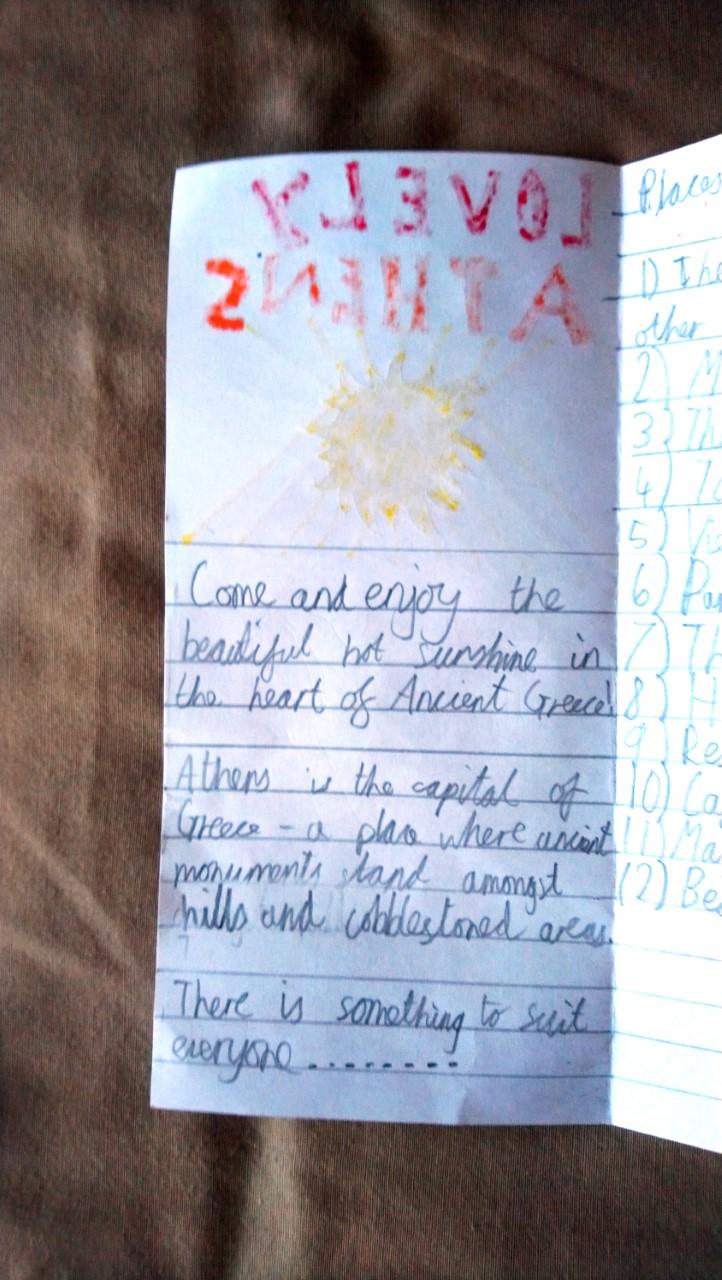 LOVELY
ATHENS
Come and enjoy the
beautiful hot sunshine in
the heart of Ancient Greece!
Athens is the capital of
Greece - a place where ancient
monuments stand amongst
hills and cobblestoned areas.
There is something to suit
everyone.........
Places
1) The
other
2) M
3) Th
4)
5) Vi
6) Pa
7) Th
8) H
9) Re
10) Ca
11) Ma
12) Be